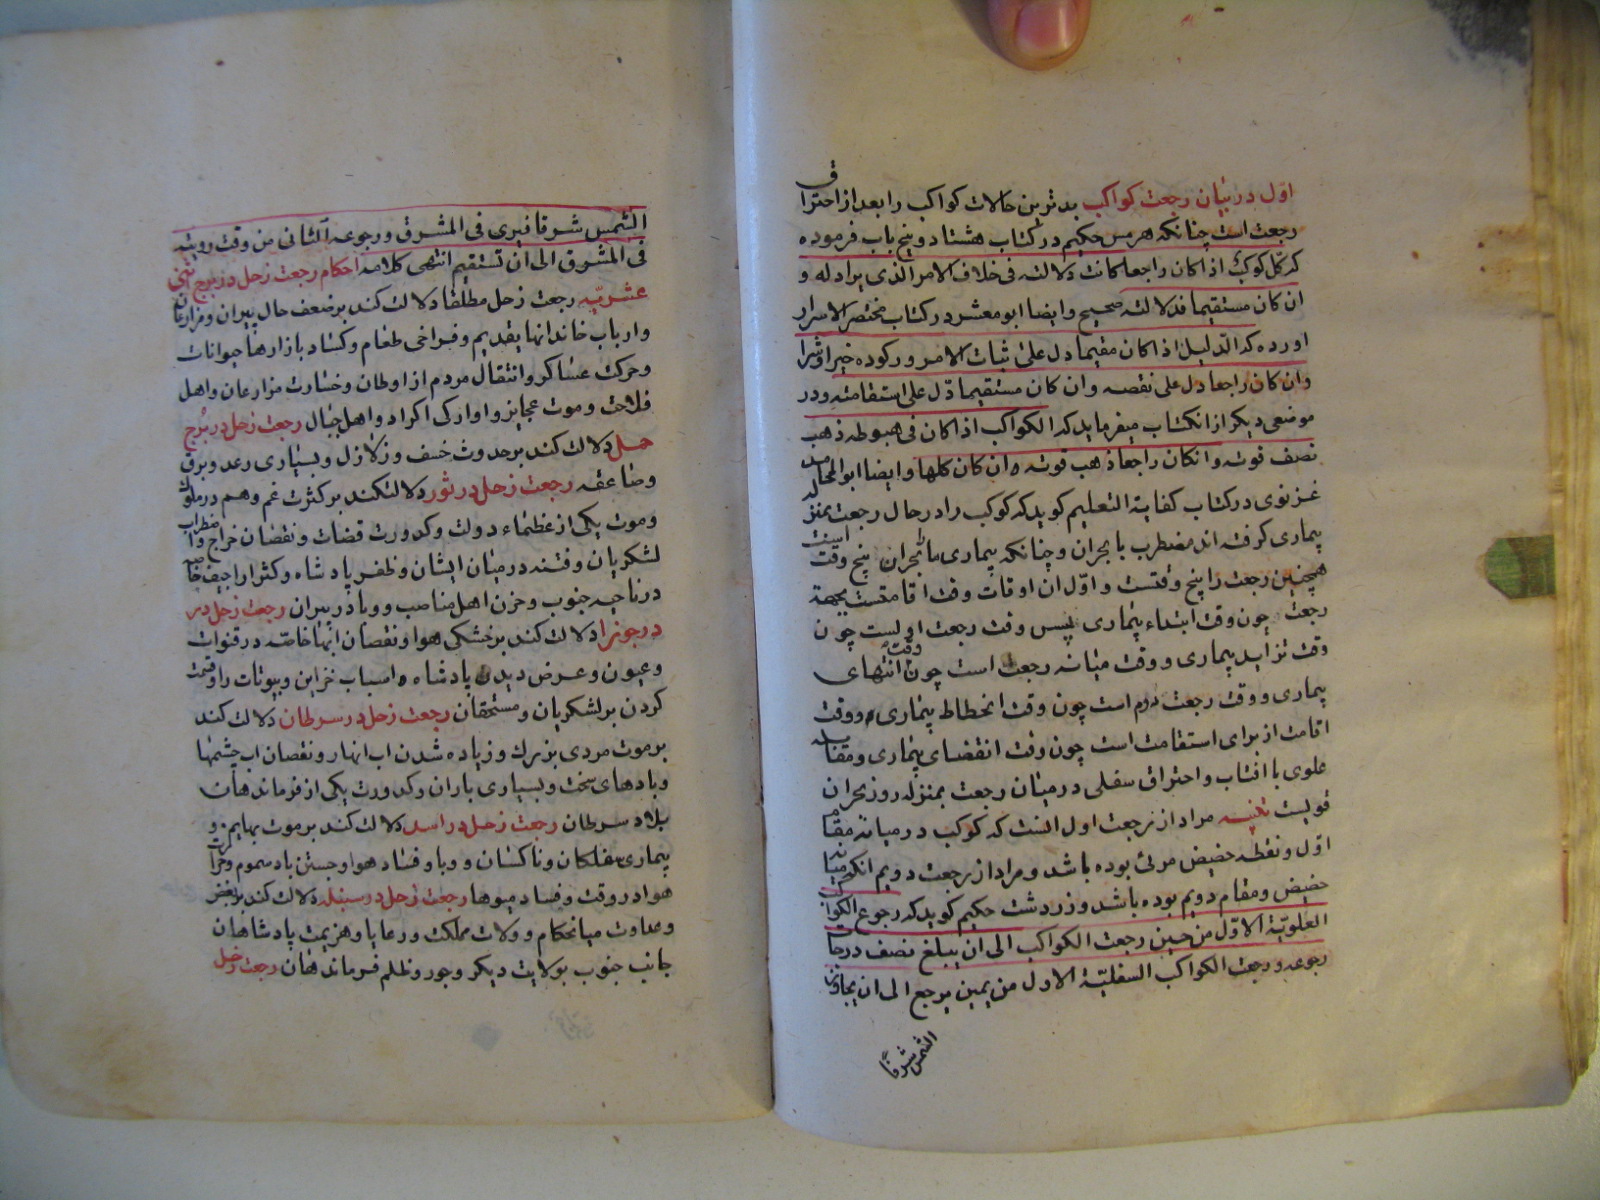 اول در بیان رجعت کواکب بدترین حالات کواکب را بعد از احتراق
رجعت است چنانکه هرمس حکیم در کتاب هشتاد و پنج باب فرموده
که کل کوکب اذا کان راجعا کانت دلالته فی خلاف الامر الذی یراد له و
ان کان مستقیما فدلالته صحیح و ایضا ابو معشر در کتاب مختصر الاسرار
اورده که الدلیل اذا کان مقیما دل علی ثبات الامر و رکوده خیرا و شرا
و ان کان راجعا دل علی نقصه و ان کان مستقیما دل علی استقامته و در
موضعی دیگر از انکتاب میفرماید که الکواکب اذا کان فی هبوطه ذهب
نصف قوته و انکان راجعا ذهب قوته کلها و ایضا ابو المحامد
غزنوی در کتاب کفایة التعلیم کوید که کوکب را در حال رجعت بمنزله
بیماری کرفته اند مضطرب با بحران و چنانکه بیماری با بحران پنج وقت است
همچنین رجعت را پنج وقتست و اول ان اوقات وقت اقامتست بجهة
رجعت چون وقت ابتداء بیماری پس وقت رجعت اولست چون
وقت تزاید بیماری و وقت میانه رجعت است چون وقت انتهای
بیماری و وقت رجعت دوم است چون وقت انحطاط بیماری و وقت
اقامت از برای استقامت است چون وقت انقضای بیماری و مقابله
علوی با افتاب و احتراق سفلی در میان رجعت بمنزله روز بحران
قویست تنبیه مراد از رجعت اول انست که کوکب در میانه مقام
اول و نقطه حضیض مرئی بوده باشد و مراد از رجعت دویم انکه میان
حضیض و مقام دویم بوده باشد و زردشت حکیم کوید که رجوع الکواکب
العلویة الاول من حین رجعت الکواکب الی ان یبلغ نصف درجات
رجوعه و رجعت الکواکب السفلیة الاول من یمین یرجع الی ان یجاوز
الشمس شرقا
الشمس شرقا فیری فی المشرق و رجوعه الثانی من وقت رویته
فی المشرق الی ان تستقیم انتهی کلامه احکام رجعت زحل در بروج اثنی
عشریه رجعت زحل مطلقا دلالت کند بر ضعف حال پیران و مزارعان
و ارباب خاندانها بقدیم و فراخی طعام و کساد بازارها حیوانات
و حرکت عساکر و انتقال مردم از اوطان و خسارت مزارعان و اهل
فلاحت و موت عجایز و اوارکی اکراد و اهل جبال رجعت زحل در برج
حمل دلالت کند بر حدوث خسف و زلازل و بسیاری رعد و برق
و صاعقه رجعت زحل در ثور دلالت کند بر کثرت غم و هم در ملوک
و موت یکی از عظماء دولت و کدورت قضات و نقصان خراج و اضطراب
لشکریان و فتنه در میان ایشان و ظفر پادشاه و کثر اراجیف خاصه
در ناحیه جنوب و حزن اهل مناصب و وبا در پیران رجعت زحل در
در جوزا دلالت کند بر خشکی هوا و نقصان ابها خاصه در قنوات
و عیون و عرض دیدن پادشاه اسباب خزاین و بیوتات را و قسمت
کردن بر لشکریان و مستحقان رجعت زحل در سرطان دلالت کند
بر موت مردی بزرک و زیاده شدن اب انهار و نقصان اب چشمها
و بادهای سخت و بسیاری باران و کدورت یکی از فرماندهان
بلاد سرطان رجعت زحل در اسد دلالت کند بر موت بهایم و
بیماری سفلکان و ناکسان و وبا و فساد هوا و جستن باد سموم و حرارت
هوا در وقت و فساد میوها رجعت زحل در سنبله دلالت کند بر بغض
و عداوت میان حکام و ولات مملکت و رعایا و هزیمت پادشاهان
جانب جنوب بولایت دیکر و جور و ظلم فرماندهان رجعت زحل